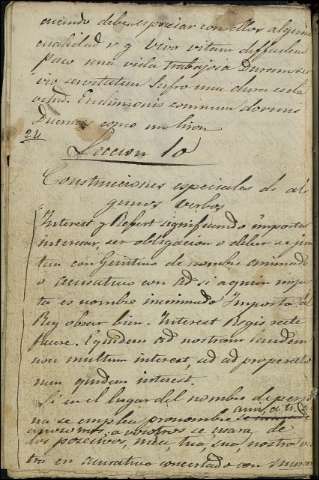 cuando debe expresar con ellos alguna
cualidad v. g. Vivo vitam
paso una vida trabajosa Duram ser
vio servitutem Sufro una dura escla
vitud. Endimionis somnum dormis
Duermes como un liron
24
Leccion 10
Construciones especiales de al
gunos verbos
Interest y Refert significando importar
interesar, ser obligacion o deber se jun
tan con Genitivo de nombre animado
o acusativo con ad si aquien impor
ta es nombre inanimado Importa al
Rey obrar bien. Interest Regis recte
facere. Equidem ad nostram laudem
non multum interest, ad
quidem interest.
Si en el lugar del nombre de perso
na se emplea pronombre
ami, a ti,
a nosotros, a vosotros se usara, de
los posecivos, mea, tua, sua, nostra ves
tra en acusativo concertado con